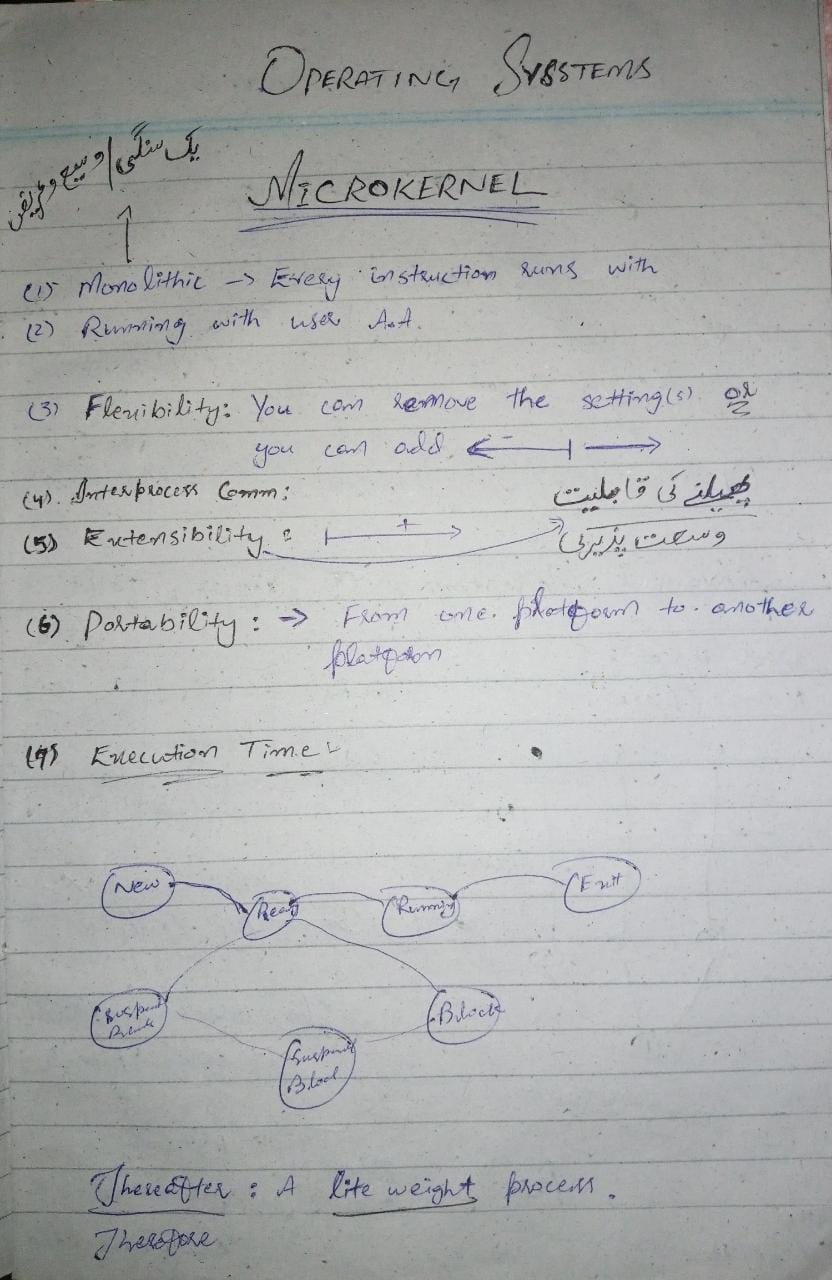 OPERATING SYSSTEMS
یک سنگی / وسیع و
MICROKERNEL
(1) Monolithic → Every instruction runs with
(2) Running with user A.A.
(3) Flexibility: You can remove the setting(s) or
you can add ←
(4). Interprocess Comm:
پھیلنے کی قابلیت
(5) Extensibility: +
وسعت پذیری
(6) Portability: → From one platform to another
platform
(7) Execution Time
New
Ready
Running
Exit
Suspend
Block
Suspend
Block
Thereafter: A lite weight process.
Therefore